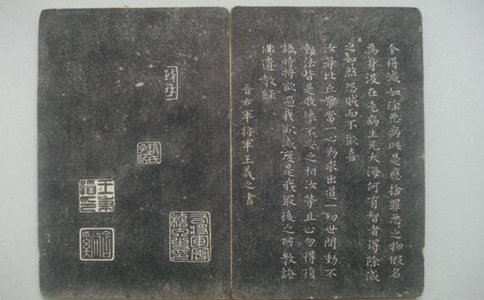 今得滅如除惡病此是應捨罪惡之物假名
為身沒在老病生死大海何有智者得除滅
之如煞怨賊而不歡喜
汝等比丘常當一心勤求出道一切世間動不
動法皆是敗壞不安之相汝等且止勿得復
語時將欲過我欲滅度是我最後之所教誨
佛遺教經
晉右軍將軍王羲之書
趙氏子昂